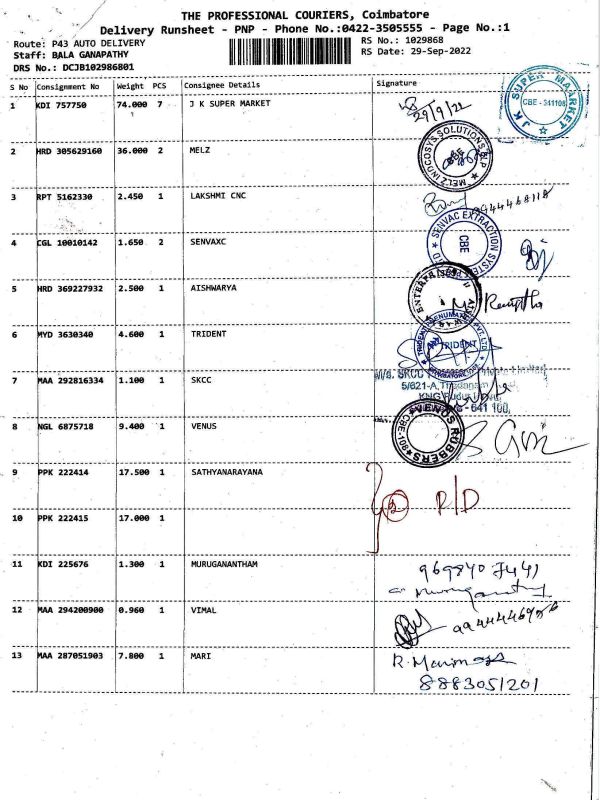 THE PROFESSIONAL COURIERS, Coimbatore
Delivery Runsheet - PNP - Phone No.:0422-3505555 - Page No.:1
Route: P43 AUTO DELIVERY
RS No.: 1029868
Staff: BALA GANAPATHY
RS Date: 29-Sep-2022
DRS No.: DCJB102986801
S No Consignment No Weight PCS Consignee Details Signature
1 KDI 757750 74.000 7 J K SUPER MARKET
29/9/22
J K SUPER MAARKET
CBE - 341108
2 HRD 305629160 36.000 2 MELZ
CBE
3 RPT 5162330 2.450 1 LAKSHMI CNC
SENVAC EXTRACTION SYSTEM
CBE
4 CGL 10010142 1.650 2 SENVAXC
5 HRD 369227932 2.500 1 AISHWARYA
6 MYD 3630340 4.600 1 TRIDENT
TRIDENT
7 MAA 292816334 1.100 1 SKCC
M/s. SKCC
641 100,
8 NGL 6875718 9.400 1 VENUS
VENUS RUBBERS
9 PPK 222414 17.500 1 SATHYANARAYANA
R/D
10 PPK 222415 17.000 1
11 KDI 225676 1.300 1 MURUGANANTHAM
969840 7441
12 MAA 294200900 0.960 1 VIMAL
13 MAA 287051903 7.800 1 MARI
8883051201